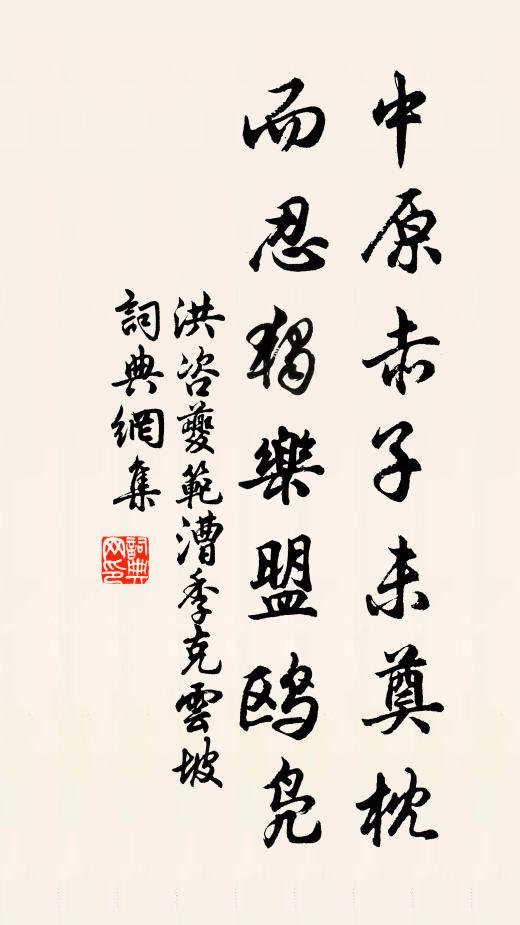 中原赤子未奠枕
而忍獨樂盟鷗鳧
洪咨夔範漕季克雲坡
詞典網集
詞典网印